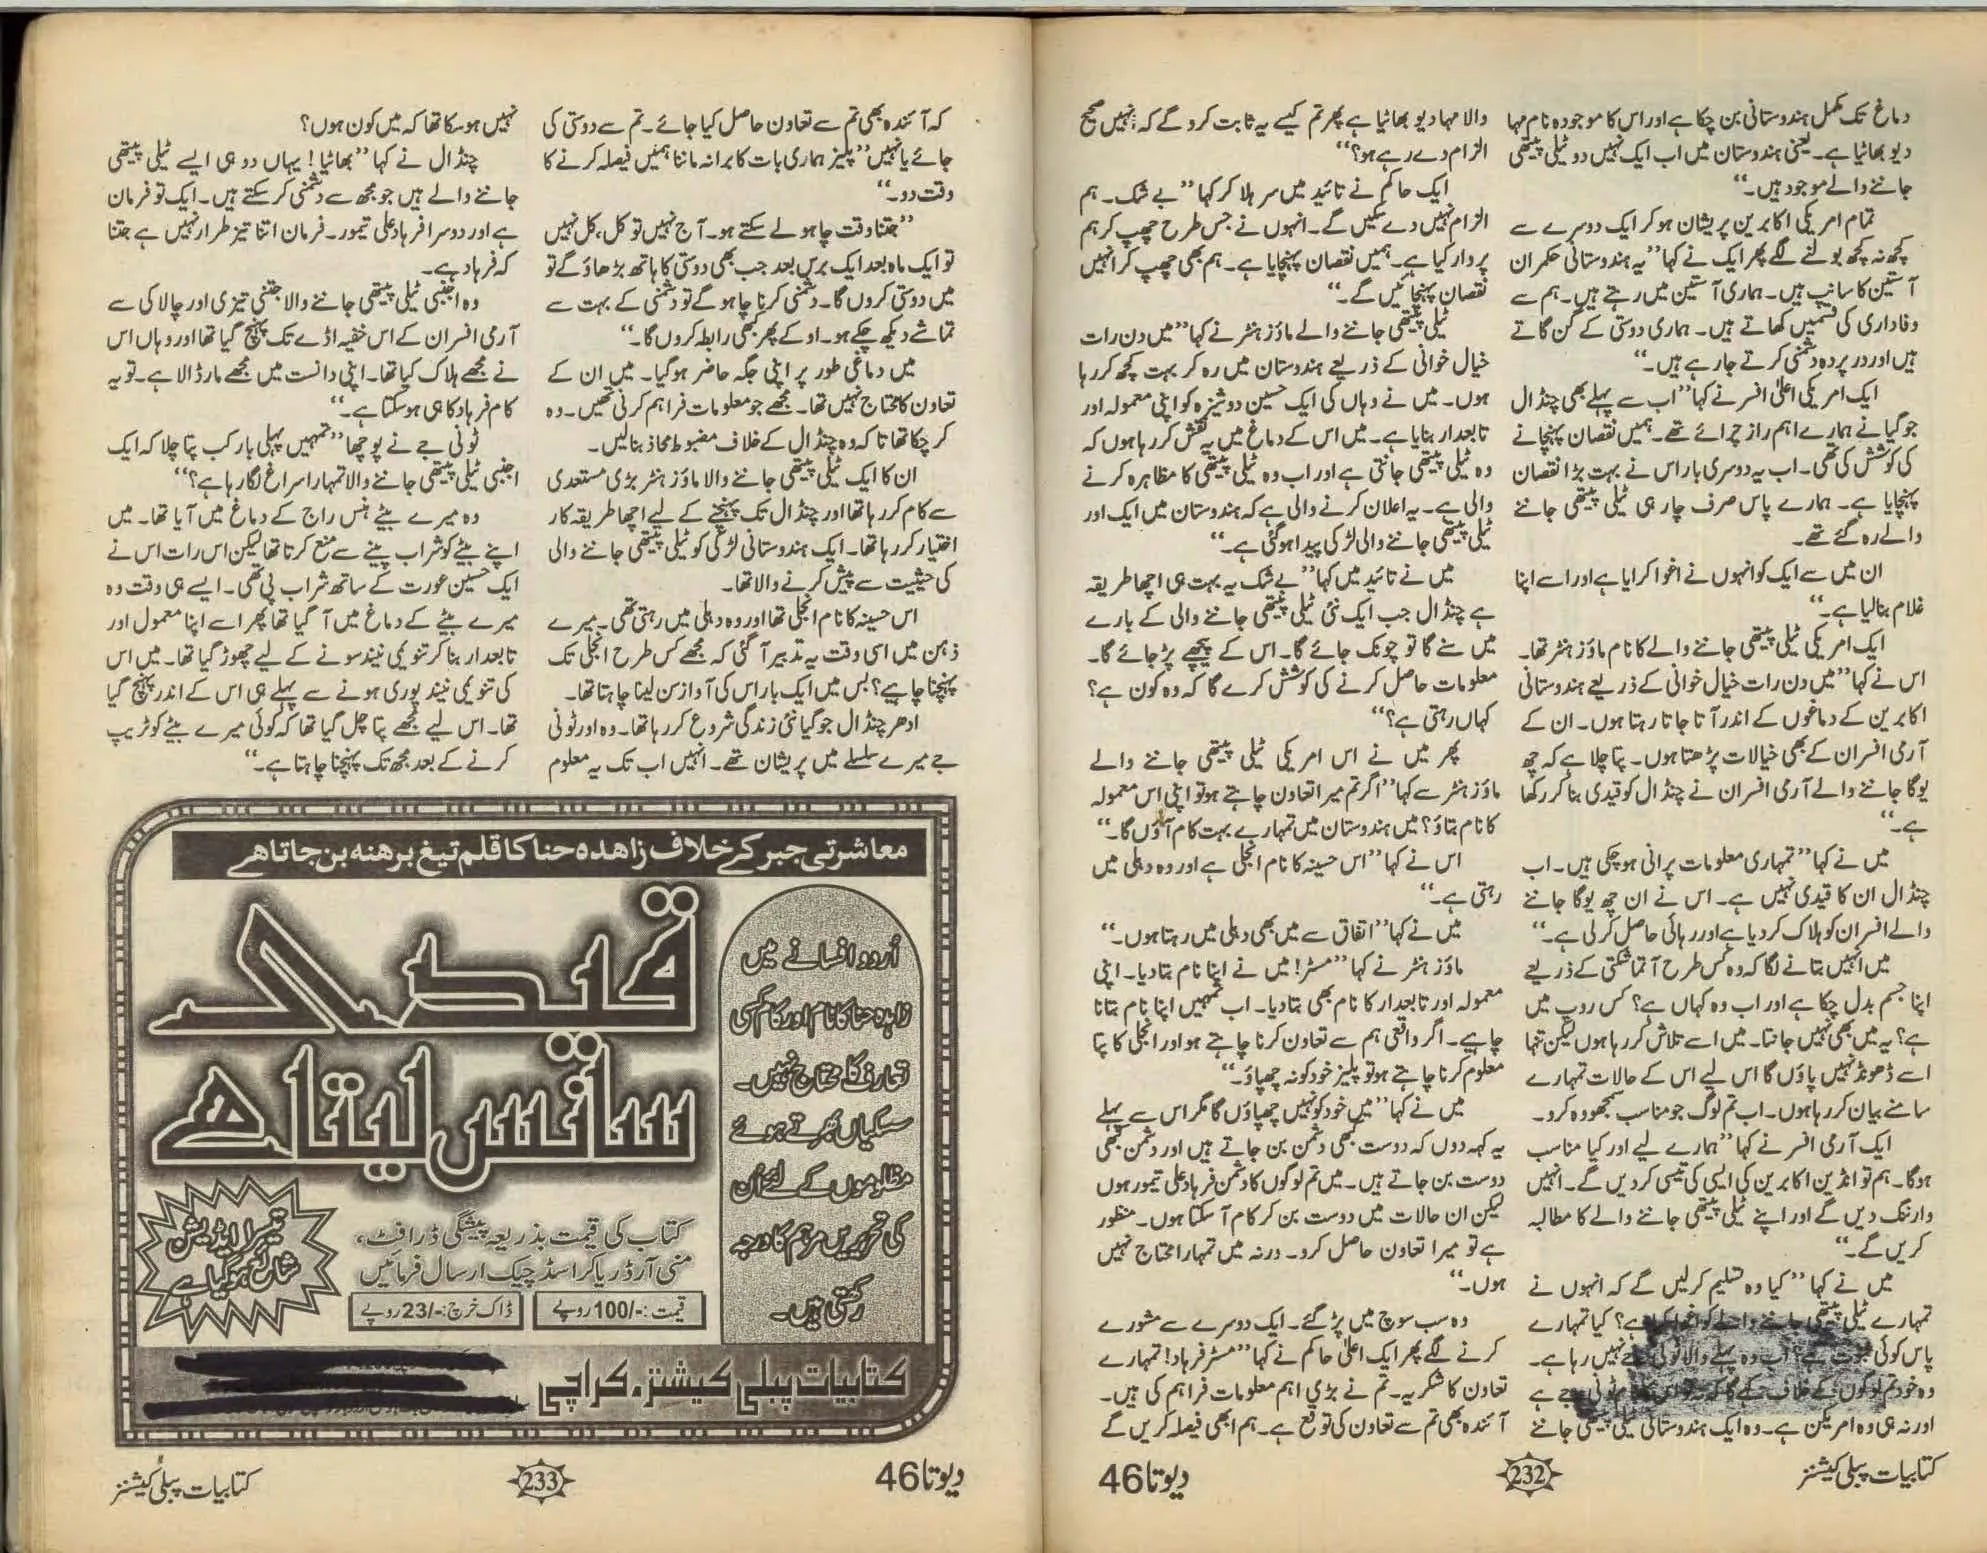 دماغ تک مکمل ہندوستانی بن چکا ہے اور اس کا موجودہ نام مہا
دیو بھاٹیا ہے۔ یعنی ہندوستان میں اب ایک نہیں دو ٹیلی پیتھی
جاننے والے موجود ہیں۔“
تمام امریکی اکابرین پریشان ہو کر ایک دوسرے سے
کچھ نہ کچھ بولنے لگے پھر ایک نے کہا ”یہ ہندوستانی حکمران
آستین کا سانپ ہیں۔ ہماری آستین میں رہتے ہیں۔ ہم سے
وفاداری کی قسمیں کھاتے ہیں۔ ہماری دوستی کے گن گاتے
ہیں اور در پردہ دشمنی کرتے جا رہے ہیں۔“
ایک امریکی اعلیٰ افسر نے کہا ”اب سے پہلے بھی چنڈال
جوگیا نے ہمارے اہم راز چرائے تھے۔ ہمیں نقصان پہنچانے
کی کوشش کی تھی۔ اب یہ دوسری بار اس نے بہت بڑا نقصان
پہنچایا ہے۔ ہمارے پاس صرف چار ہی ٹیلی پیتھی جاننے
والے رہ گئے تھے۔
ان میں سے ایک کو انہوں نے اغوا کرایا ہے اور اسے اپنا
غلام بنا لیا ہے۔“
ایک امریکی ٹیلی پیتھی جاننے والے کا نام ماؤز ہنٹر تھا۔
اس نے کہا ”میں دن رات خیال خوانی کے ذریعے ہندوستانی
اکابرین کے دماغوں کے اندر آتا جاتا رہتا ہوں۔ ان کے
آرمی افسران کے بھی خیالات پڑھتا ہوں۔ پتا چلا ہے کہ چھ
یوگا جاننے والے آرمی افسران نے چنڈال کو قیدی بنا کر رکھا
ہے۔“
میں نے کہا ”تمہاری معلومات پرانی ہو چکی ہیں۔ اب
چنڈال ان کا قیدی نہیں ہے۔ اس نے ان چھ یوگا جاننے
والے افسران کو ہلاک کر دیا ہے اور رہائی حاصل کر لی ہے۔“
میں انہیں بتانے لگا کہ وہ کس طرح آتما شکتی کے ذریعے
اپنا جسم بدل چکا ہے اور اب وہ کہاں ہے؟ کس روپ میں
ہے؟ یہ میں بھی نہیں جانتا۔ میں اسے تلاش کر رہا ہوں لیکن تنہا
اسے ڈھونڈ نہیں پاؤں گا اس لیے اس کے حالات تمہارے
سامنے بیان کر رہا ہوں۔ اب تم لوگ جو مناسب سمجھو وہ کرو۔
ایک آرمی افسر نے کہا ”ہمارے لیے اور کیا مناسب
ہوگا۔ ہم تو انڈین اکابرین کی ایسی کی تیسی کر دیں گے۔ انہیں
وارننگ دیں گے اور اپنے ٹیلی پیتھی جاننے والے کا مطالبہ
کریں گے۔“
میں نے کہا ”کیا وہ تسلیم کر لیں گے کہ انہوں نے
تمہارے ٹیلی پیتھی جاننے والے کو اغوا کیا ہے؟ کیا تمہارے
پاس کوئی ثبوت ہے؟ اب وہ پہلے والا ٹونی جے نہیں رہا ہے۔
وہ خود تم لوگوں کے خلاف کہے گا کہ نہ تو اس کا نام ٹونی جے ہے
اور نہ ہی وہ امریکن ہے۔ وہ ایک ہندوستانی ٹیلی پیتھی جاننے
والا مہا دیو بھاٹیا ہے پھر تم کیسے یہ ثابت کرو گے کہ نہیں صحیح
الزام دے رہے ہو؟“
ایک حاکم نے تائید میں سر ہلا کر کہا ”بے شک۔ ہم
الزام نہیں دے سکیں گے۔ انہوں نے جس طرح چھپ کر ہم
پر وار کیا ہے۔ ہمیں نقصان پہنچایا ہے۔ ہم بھی چھپ کر انہیں
نقصان پہنچائیں گے۔“
ٹیلی پیتھی جاننے والے ماؤز ہنٹر نے کہا ”میں دن رات
خیال خوانی کے ذریعے ہندوستان میں رہ کر بہت کچھ کر رہا
ہوں۔ میں نے وہاں کی ایک حسین دوشیزہ کو اپنی معمولہ اور
تابعدار بنایا ہے۔ میں اس کے دماغ میں یہ نقش کر رہا ہوں کہ
وہ ٹیلی پیتھی جانتی ہے اور اب وہ ٹیلی پیتھی کا مظاہرہ کرنے
والی ہے۔ یہ اعلان کرنے والی ہے کہ ہندوستان میں ایک اور
ٹیلی پیتھی جاننے والی لڑکی پیدا ہو گئی ہے۔“
میں نے تائید میں کہا ”بے شک یہ بہت ہی اچھا طریقہ
ہے چنڈال جب ایک نئی ٹیلی پیتھی جاننے والی کے بارے
میں سنے گا تو چونک جائے گا۔ اس کے پیچھے پڑ جائے گا۔
معلومات حاصل کرنے کی کوشش کرے گا کہ وہ کون ہے؟
کہاں رہتی ہے؟“
پھر میں نے اس امریکی ٹیلی پیتھی جاننے والے
ماؤز ہنٹر سے کہا ”اگر تم میرا تعاون چاہتے ہو تو اپنی اس معمولہ
کا نام بتاؤ؟ میں ہندوستان میں تمہارے بہت کام آؤں گا۔“
اس نے کہا ”اس حسینہ کا نام انجلی ہے اور وہ دہلی میں
رہتی ہے۔“
میں نے کہا ”اتفاق سے میں بھی دہلی میں رہتا ہوں۔“
ماؤز ہنٹر نے کہا ”مسٹر! میں نے اپنا نام بتا دیا۔ اپنی
معمولہ اور تابعدار کا نام بھی بتا دیا۔ اب تمہیں اپنا نام بتانا
چاہیے۔ اگر واقعی ہم سے تعاون کرنا چاہتے ہو اور انجلی کا پتا
معلوم کرنا چاہتے ہو تو پلیز خود کو نہ چھپاؤ۔“
میں نے کہا ”میں خود کو نہیں چھپاؤں گا مگر اس سے پہلے
یہ کہہ دوں کہ دوست کبھی دشمن بن جاتے ہیں اور دشمن بھی
دوست بن جاتے ہیں۔ میں تم لوگوں کا دشمن فرہاد علی تیمور ہوں
لیکن ان حالات میں دوست بن کر کام آ سکتا ہوں۔ منظور
ہے تو میرا تعاون حاصل کرو۔ ورنہ میں تمہارا محتاج نہیں
ہوں۔“
وہ سب سوچ میں پڑ گئے۔ ایک دوسرے سے مشورے
کرنے لگے پھر ایک اعلیٰ حاکم نے کہا ”مسٹر فرہاد! تمہارے
تعاون کا شکریہ۔ تم نے بڑی اہم معلومات فراہم کی ہیں۔
آئندہ بھی تم سے تعاون کی توقع ہے۔ ہم ابھی فیصلہ کریں گے
کتابیات پبلی کیشنز
232
دیوتا 46
کہ آئندہ بھی تم سے تعاون حاصل کیا جائے۔ تم سے دوستی کی
جائے یا نہیں ”پلیز ہماری بات کا برا نہ ماننا ہمیں فیصلہ کرنے کا
وقت دو۔“
”جتنا وقت چاہو لے سکتے ہو۔ آج نہیں تو کل، کل نہیں
تو ایک ماہ بعد ایک برس بعد جب بھی دوستی کا ہاتھ بڑھاؤ گے تو
میں دوستی کروں گا۔ دشمنی کرنا چاہو گے تو دشمنی کے بہت سے
تماشے دیکھ چکے ہو۔ او کے پھر بھی رابطہ کروں گا۔“
میں دماغی طور پر اپنی جگہ حاضر ہو گیا۔ میں ان کے
تعاون کا محتاج نہیں تھا۔ مجھے جو معلومات فراہم کرنی تھیں۔ وہ
کر چکا تھا تاکہ وہ چنڈال کے خلاف مضبوط محاذ بنا لیں۔
ان کا ایک ٹیلی پیتھی جاننے والا ماؤز ہنٹر بڑی مستعدی
سے کام کر رہا تھا اور چنڈال تک پہنچنے کے لیے اچھا طریقہ کار
اختیار کر رہا تھا۔ ایک ہندوستانی لڑکی کو ٹیلی پیتھی جاننے والی
کی حیثیت سے پیش کرنے والا تھا۔
اس حسینہ کا نام انجلی تھا اور وہ دہلی میں رہتی تھی۔ میرے
ذہن میں اسی وقت یہ تدبیر آ گئی کہ مجھے کس طرح انجلی تک
پہنچنا چاہیے؟ بس میں ایک بار اس کی آواز سن لینا چاہتا تھا۔
ادھر چنڈال جوگیا نئی زندگی شروع کر رہا تھا۔ وہ اور ٹونی
جے میرے سلسلے میں پریشان تھے۔ انہیں اب تک یہ معلوم
نہیں ہو سکا تھا کہ میں کون ہوں؟
چنڈال نے کہا ”بھاٹیا! یہاں دو ہی ایسے ٹیلی پیتھی
جاننے والے ہیں جو مجھ سے دشمنی کر سکتے ہیں۔ ایک تو فرمان
ہے اور دوسرا فرہاد علی تیمور۔ فرمان اتنا تیز طرار نہیں ہے جتنا
کہ فرہاد ہے۔
وہ اجنبی ٹیلی پیتھی جاننے والا جتنی تیزی اور چالاکی سے
آرمی افسران کے اس خفیہ اڈے تک پہنچ گیا تھا اور وہاں اس
نے مجھے ہلاک کیا تھا۔ اپنی دانست میں مجھے مار ڈالا ہے۔ تو یہ
کام فرہاد کا ہی ہو سکتا ہے۔“
ٹونی جے نے پوچھا ”تمہیں پہلی بار کب پتا چلا کہ ایک
اجنبی ٹیلی پیتھی جاننے والا تمہارا سراغ لگا رہا ہے؟“
وہ میرے بیٹے ہنس راج کے دماغ میں آیا تھا۔ میں
اپنے بیٹے کو شراب پینے سے منع کرتا تھا لیکن اس رات اس نے
ایک حسین عورت کے ساتھ شراب پی تھی۔ ایسے ہی وقت وہ
میرے بیٹے کے دماغ میں آ گیا تھا پھر اسے اپنا معمول اور
تابعدار بنا کر تنویمی نیند سونے کے لیے چھوڑ گیا تھا۔ میں اس
کی تنویمی نیند پوری ہونے سے پہلے ہی اس کے اندر پہنچ گیا
تھا۔ اس لیے مجھے پتا چل گیا تھا کہ کوئی میرے بیٹے کو ٹریپ
کرنے کے بعد مجھ تک پہنچنا چاہتا ہے۔“
معاشرتی جبر کے خلاف زاہدہ حنا کا قلم تیغ برہنہ بن جاتا ہے
قیدی
سانس لیتا ہے
اُردو افسانے میں
زاہدہ حنا کا نام اور کام کسی
تعارف کا محتاج نہیں۔
سسکیاں بھرتے ہوئے
مظلوموں کے لئے اُن
کی تحریریں مرہم کا درجہ
رکھتی ہیں۔
تیسرا ایڈیشن
شائع ہو گیا ہے
کتاب کی قیمت بذریعہ پیشگی ڈرافٹ،
منی آرڈر یا کراسڈ چیک ارسال فرمائیں
قیمت :-/100 روپے
ڈاک خرچ :-/23 روپے
کتابیات پبلی کیشنز۔ کراچی
دیوتا 46
233
کتابیات پبلی کیشنز